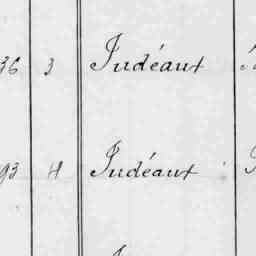 36 3 Judéaut
93 4 Judéaut